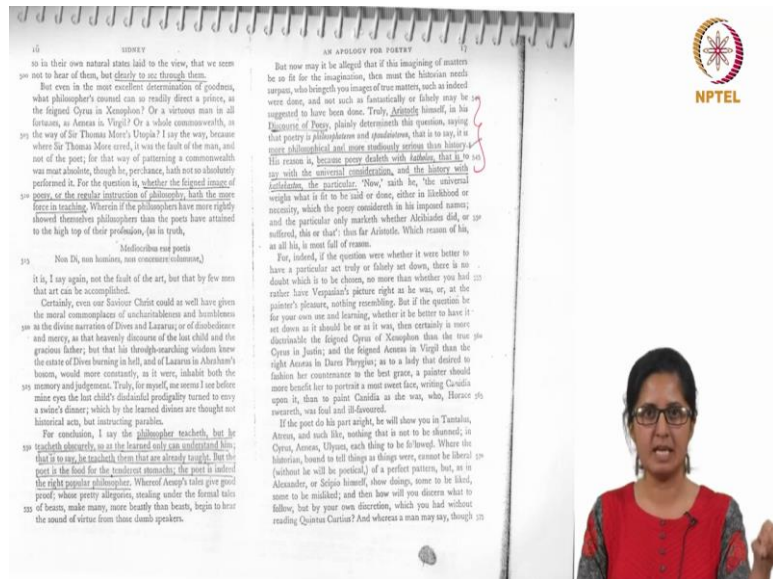 16 SIDNEY
so in their own natural states laid to the view, that we seem
500 not to hear of them, but clearly to see through them.
But even in the most excellent determination of goodness,
what philosopher's counsel can so readily direct a prince, as
the feigned Cyrus in Xenophon? Or a virtuous man in all
fortunes, as Aeneas in Virgil? Or a whole commonwealth, as
505 the way of Sir Thomas More's Utopia? I say the way, because
where Sir Thomas More erred, it was the fault of the man, and
not of the poet; for that way of patterning a commonwealth
was most absolute, though he, perchance, hath not so absolutely
performed it. For the question is, whether the feigned image of
510 poesy, or the regular instruction of philosophy, hath the more
force in teaching. Wherein if the philosophers have more rightly
showed themselves philosophers than the poets have attained
to the high top of their profession, (as in truth,
Mediocribus esse poetis
515 Non Di, non homines, non concessere columnae,)
it is, I say again, not the fault of the art, but that by few men
that art can be accomplished.
Certainly, even our Saviour Christ could as well have given
the moral commonplaces of uncharitableness and humbleness
520 as the divine narration of Dives and Lazarus; or of disobedience
and mercy, as that heavenly discourse of the lost child and the
gracious father; but that his through-searching wisdom knew
the estate of Dives burning in hell, and of Lazarus in Abraham's
bosom, would more constantly, as it were, inhabit both the
525 memory and judgement. Truly, for myself, me seems I see before
mine eyes the lost child's disdainful prodigality turned to envy
a swine's dinner; which by the learned divines are thought not
historical acts, but instructing parables.
For conclusion, I say the philosopher teacheth, but he
530 teacheth obscurely, so as the learned only can understand him;
that is to say, he teacheth them that are already taught. But the
poet is the food for the tenderest stomachs; the poet is indeed
the right popular philosopher. Whereof Aesop's tales give good
proof; whose pretty allegories, stealing under the formal tales
535 of beasts, make many, more beastly than beasts, begin to hear
the sound of virtue from those dumb speakers.
AN APOLOGY FOR POETRY 17
But now may it be alleged that if this imagining of matters
be so fit for the imagination, then must the historian needs
surpass, who bringeth you images of true matters, such as indeed
were done, and not such as fantastically or falsely may be 540
suggested to have been done. Truly, Aristotle himself, in his
Discourse of Poesy, plainly determineth this question, saying
that poetry is philosophoteron and spoudaioteron, that is to say, it is
more philosophical and more studiously serious than history.
His reason is, because poesy dealeth with katholou, that is to 545
say with the universal consideration, and the history with
kathekaston, the particular. 'Now,' saith he, 'the universal
weighs what is fit to be said or done, either in likelihood or
necessity, which the poesy considereth in his imposed names;
and the particular only marketh whether Alcibiades did, or 550
suffered, this or that': thus far Aristotle. Which reason of his,
as all his, is most full of reason.
For, indeed, if the question were whether it were better to
have a particular act truly or falsely set down, there is no
doubt which is to be chosen, no more than whether you had 555
rather have Vespasian's picture right as he was, or, at the
painter's pleasure, nothing resembling. But if the question be
for your own use and learning, whether it be better to have it
set down as it should be or as it was, then certainly is more
doctrinable the feigned Cyrus of Xenophon than the true 560
Cyrus in Justin; and the feigned Aeneas in Virgil than the
right Aeneas in Dares Phrygius; as to a lady that desired to
fashion her countenance to the best grace, a painter should
more benefit her to portrait a most sweet face, writing Canidia
upon it, than to paint Canidia as she was, who, Horace 565
sweareth, was foul and ill-favoured.
If the poet do his part aright, he will show you in Tantalus,
Atreus, and such like, nothing that is not to be shunned; in
Cyrus, Aeneas, Ulysses, each thing to be followed. Where the
historian, bound to tell things as things were, cannot be liberal 570
(without he will be poetical) of a perfect pattern, but, as in
Alexander, or Scipio himself, show doings, some to be liked,
some to be misliked; and then how will you discern what to
follow, but by your own discretion, which you had without
reading Quintus Curtius? And whereas a man may say, though 575
NPTEL